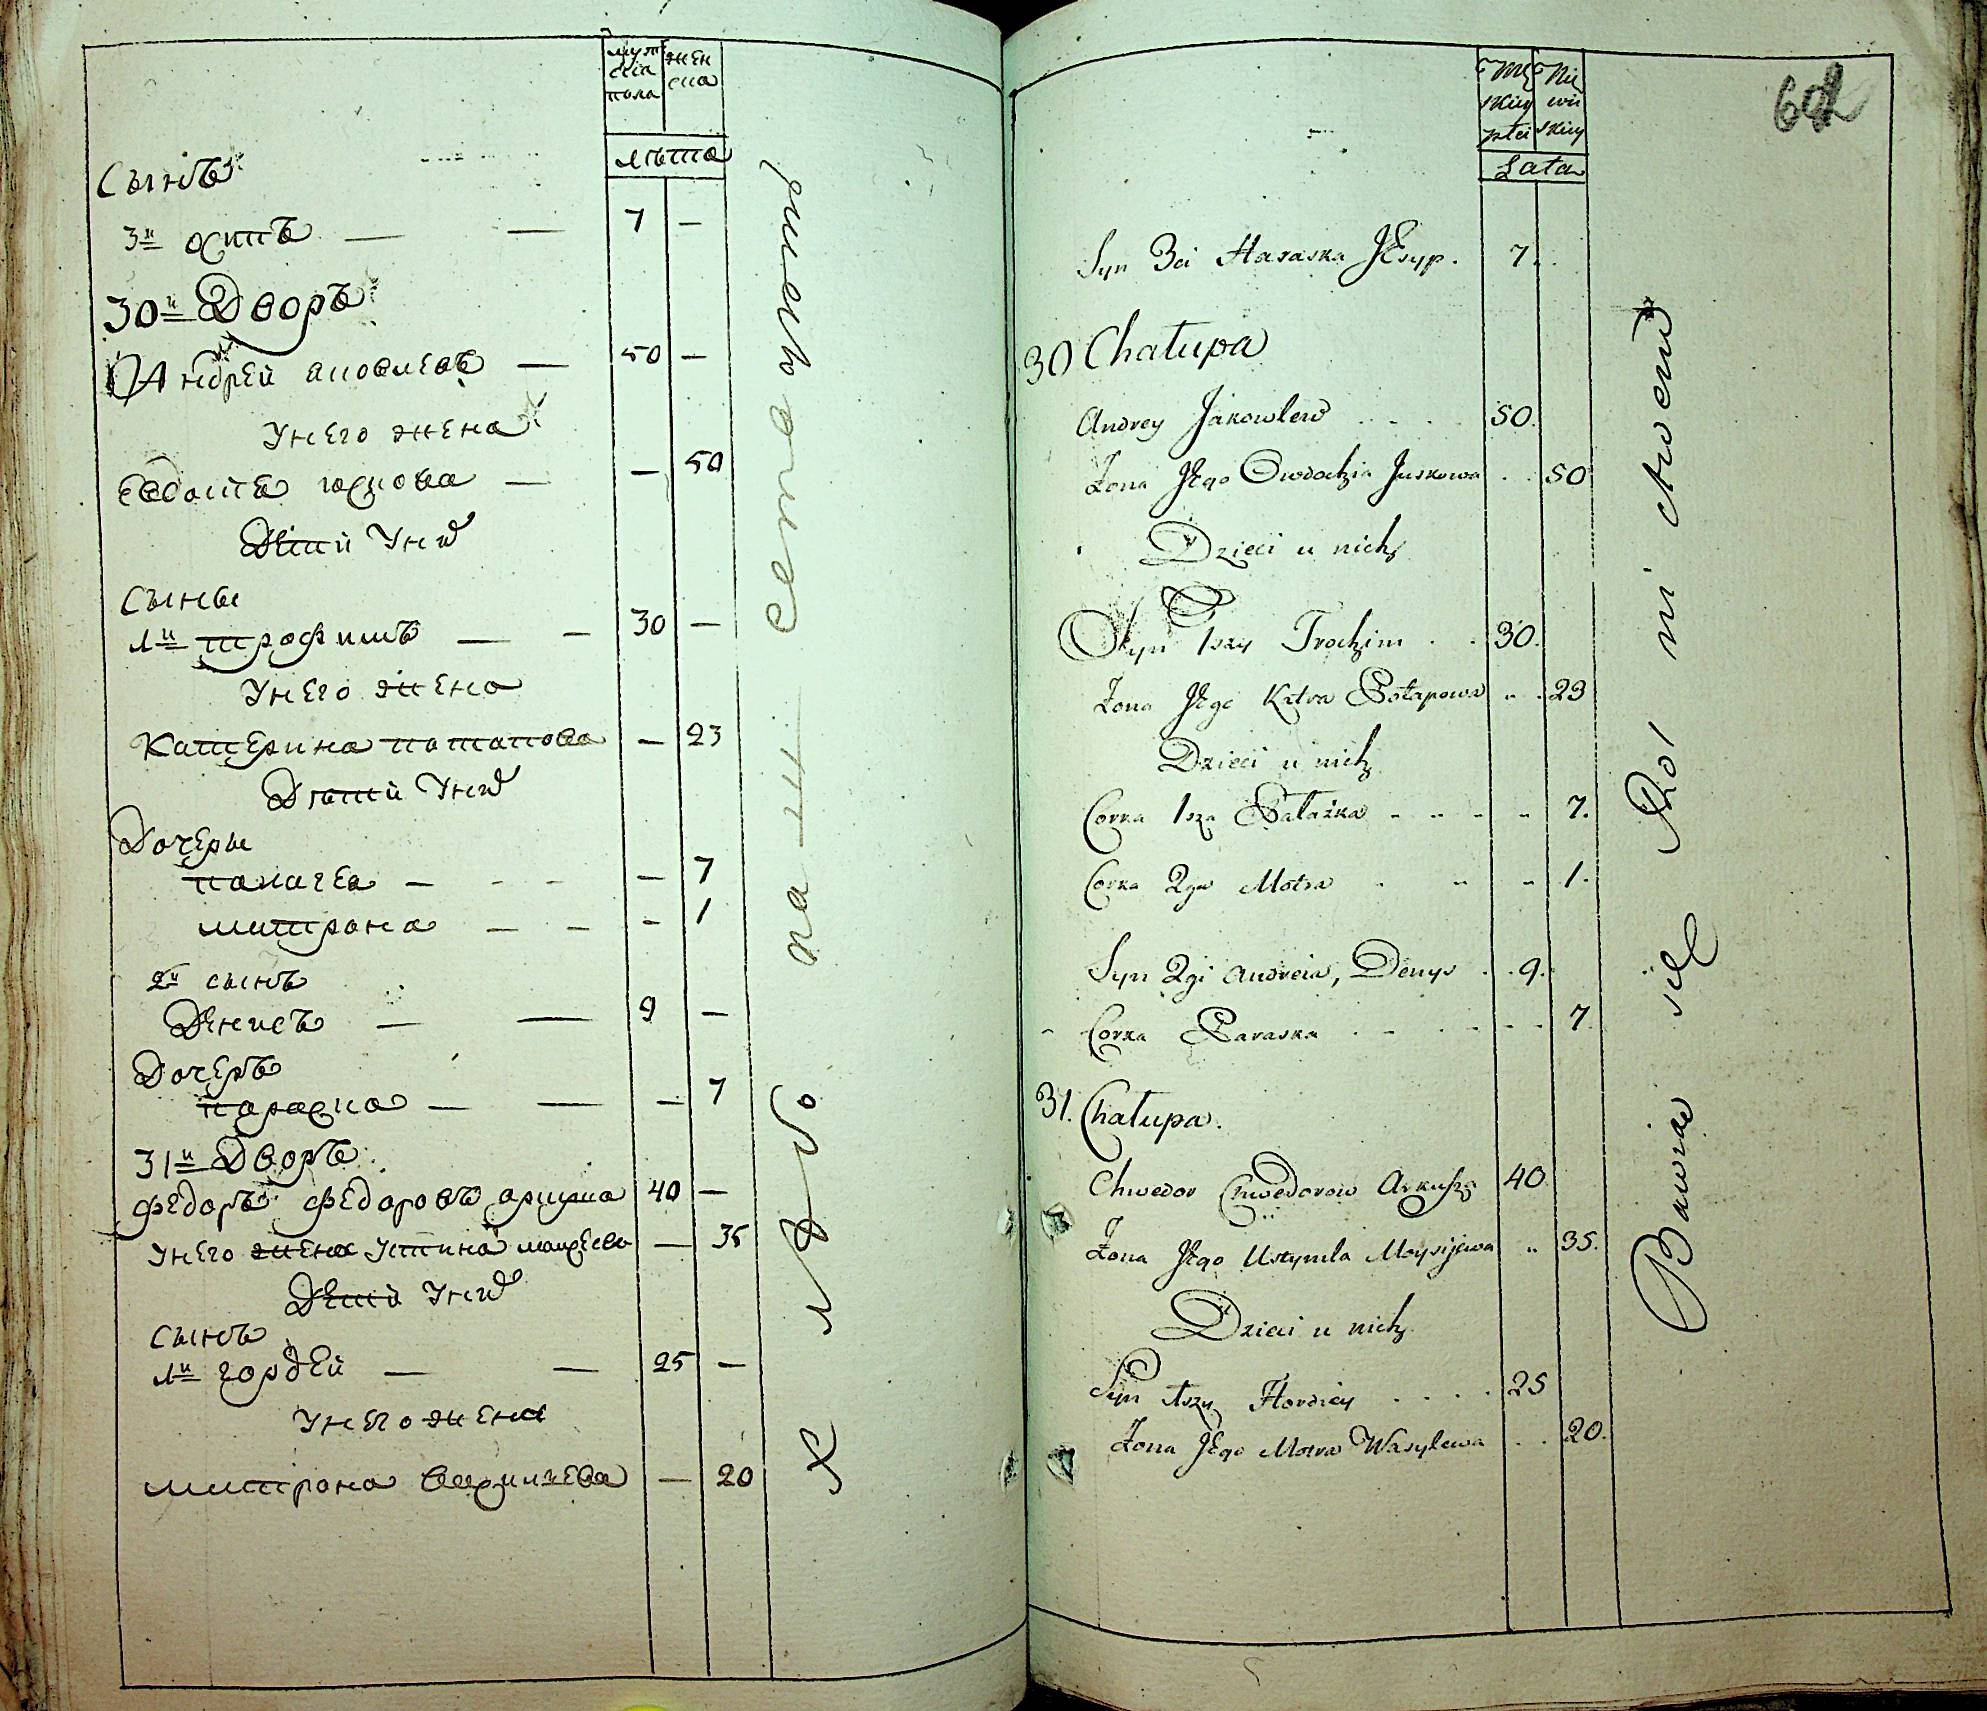 муж
ска
пола
жен
ска
лѣта
Сынъ
3й осипъ — — 7 —
30й Дворъ
Андрей яковлевъ — 50 —
У него жена
Евдоктя юскова — — 50
Дети у них
Сыны
1й трофимъ — — 30 —
У него жена
Катерина потапова — 23
Дѣти у них
Дочеры
палагея — — 7
митрона — — — 1
2й сынъ
Денисъ — — 9 —
Дочеръ
параска — — — 7
31й Дворъ
Федоръ Федоровъ 40 —
У него жена Устина — 35
Дети у них
Сынъ
1й гордей — — 25 —
У него жена
митрона — 20
Хлѣбо па сетво
602
Lata
Syn 3ci Haraska JEgo syp. 7.
30 Chałupa
Andrey Jakowlew 50.
Żona JEgo Owdochia Juskowa 50
Dzieci u nich
Syn 1szy Trochim 30.
Żona JEgo Katra Potapowa 23
Dzieci u nich
Corka 1sza Pałażka 7.
Corka 2ga Motra 1.
Syn 2gi Andreia, Denys 9.
Corka Paraska 7
31. Chałupa.
Chwedor Chwedorow Arkusza 40.
Żona JEgo Ustymla Moysijewa 35.
Dzieci u nich
Syn 1szy Hordiey 25
Żona JEgo Motra Wasylewa 20.
Bawią się Rol ni ctwem